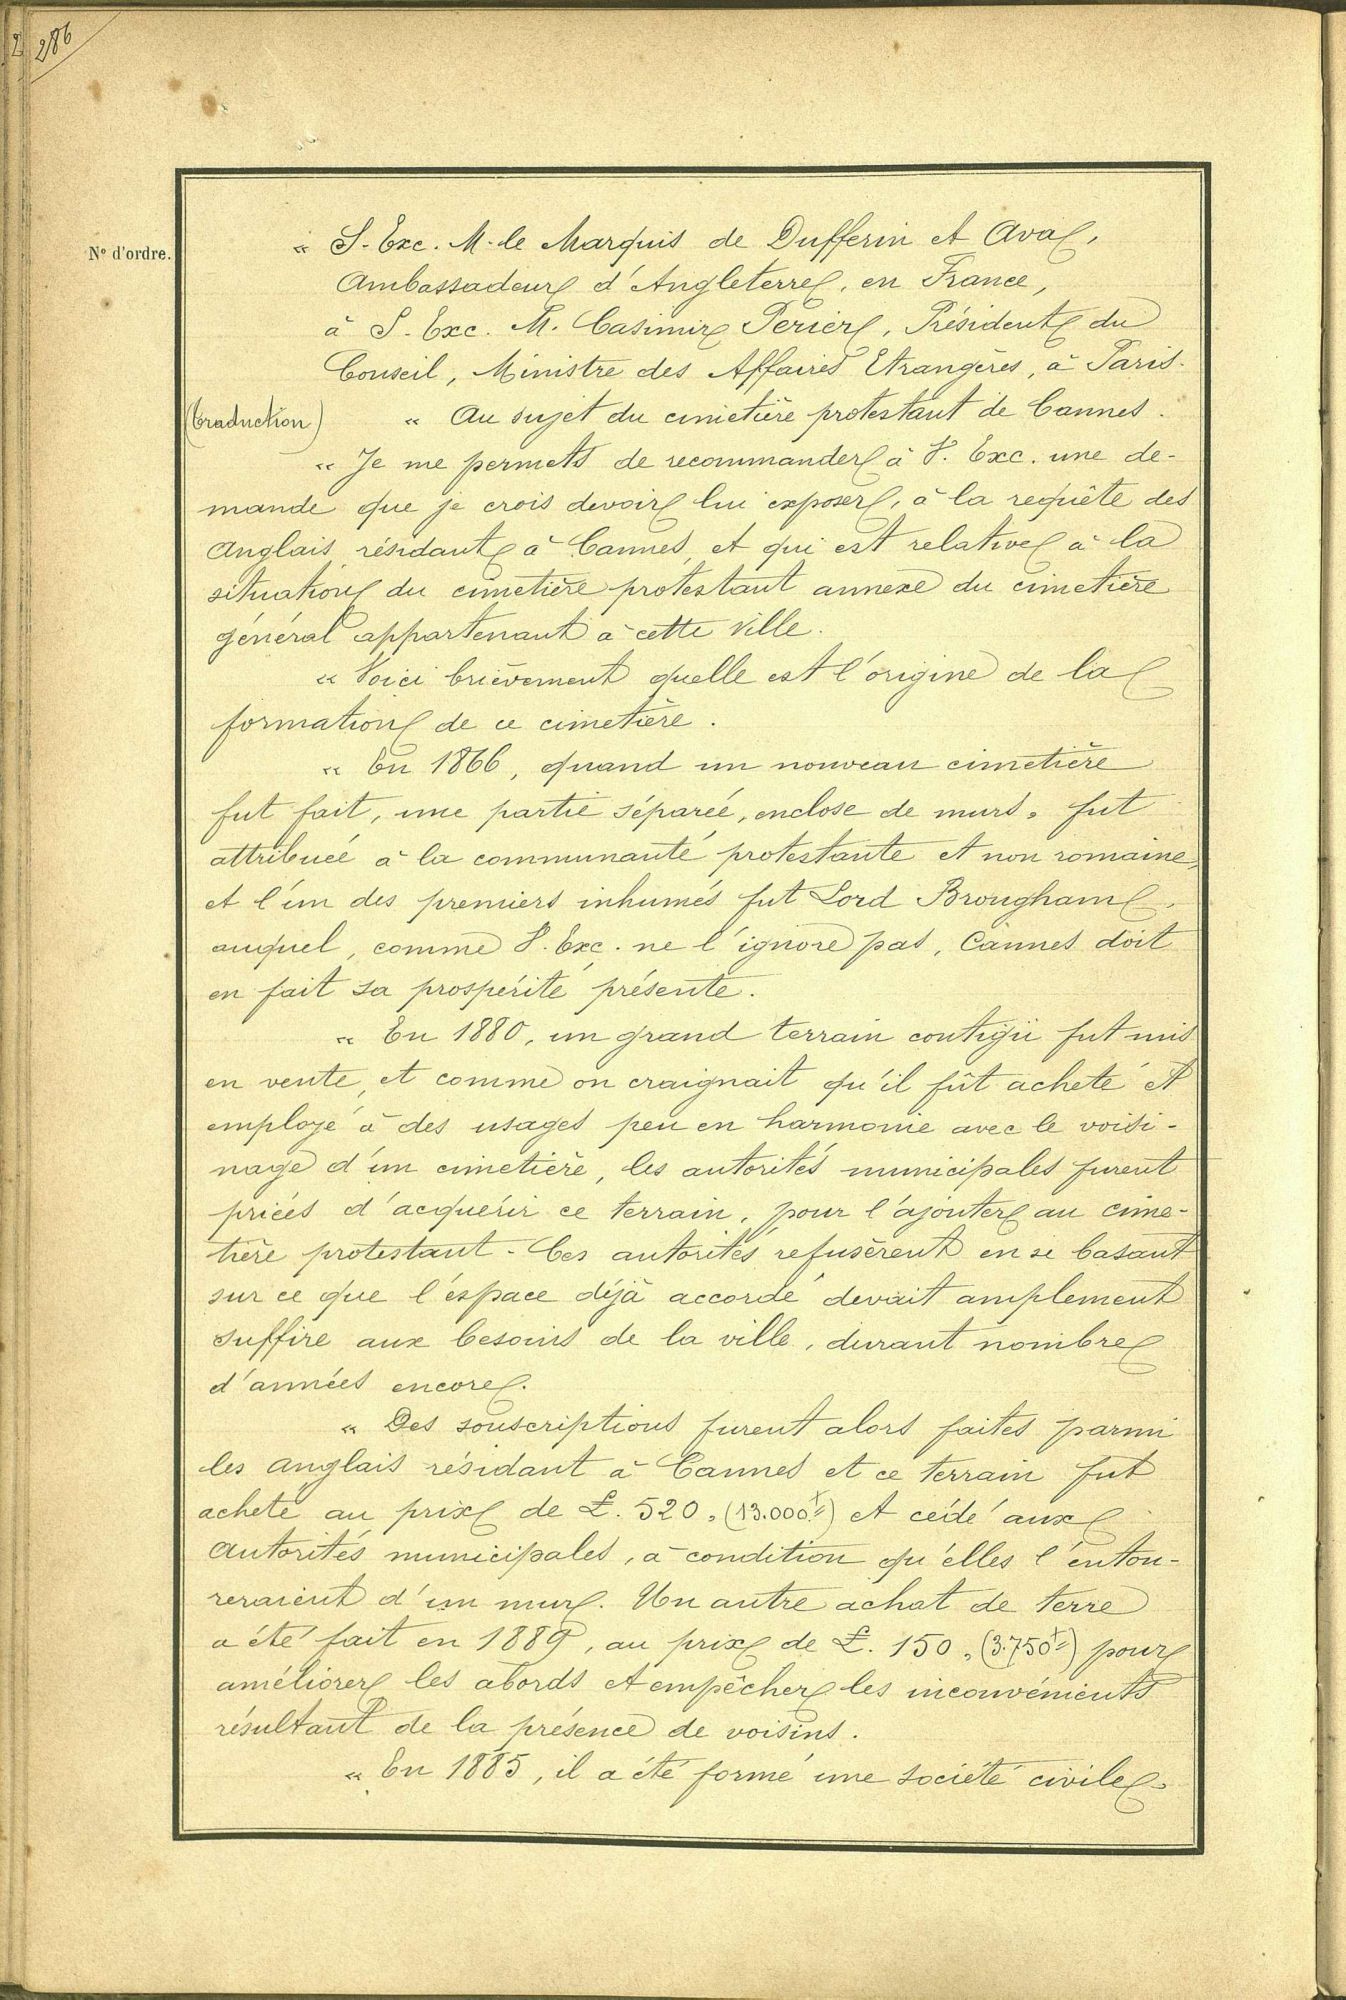 286
N° d'ordre.
« S. Exc. M. le Marquis de Dufferin et Ava,
Ambassadeur d'Angleterre, en France,
à S. Exc. M. Casimir Perier, Président du
Conseil, Ministre des Affaires Etrangères, à Paris.
(traduction) « Au sujet du cimetière protestant de Cannes.
« Je me permets de recommander à V. Exc. une de-
mande que je crois devoir lui exposer, à la requête des
Anglais résidant à Cannes, et qui est relative à la
situation du cimetière protestant annexe du cimetière
général appartenant à cette ville.
« Voici brièvement quelle est l'origine de la
formation de ce cimetière.
« En 1866, quand un nouveau cimetière
fut fait, une partie séparée, enclose de murs, fut
attribuée à la communauté protestante et non romaine,
et l'un des premiers inhumés fut Lord Brougham,
auquel, comme V. Exc. ne l'ignore pas, Cannes doit
en fait sa prospérité présente.
« En 1880, un grand terrain contigü fut mis
en vente, et comme on craignait qu'il fût acheté et
employé à des usages peu en harmonie avec le voisi-
nage d'un cimetière, les autorités municipales furent
priées d'acquérir ce terrain, pour l'ajouter au cime-
tière protestant. Ces autorités refusèrent en se basant
sur ce que l'espace déjà accordé devait amplement
suffire aux besoins de la ville, durant nombre
d'années encore.
« Des souscriptions furent alors faites parmi
les anglais résidant à Cannes et ce terrain fut
acheté au prix de £. 520, (13.000f) et cédé aux
autorités municipales, à condition qu'elles l'entou-
reraient d'un mur. Un autre achat de terre
a été fait en 1889, au prix de £. 150, (3.750f) pour
améliorer les abords et empêcher les inconvénients
résultant de la présence de voisins.
« En 1885, il a été formé une société civile,